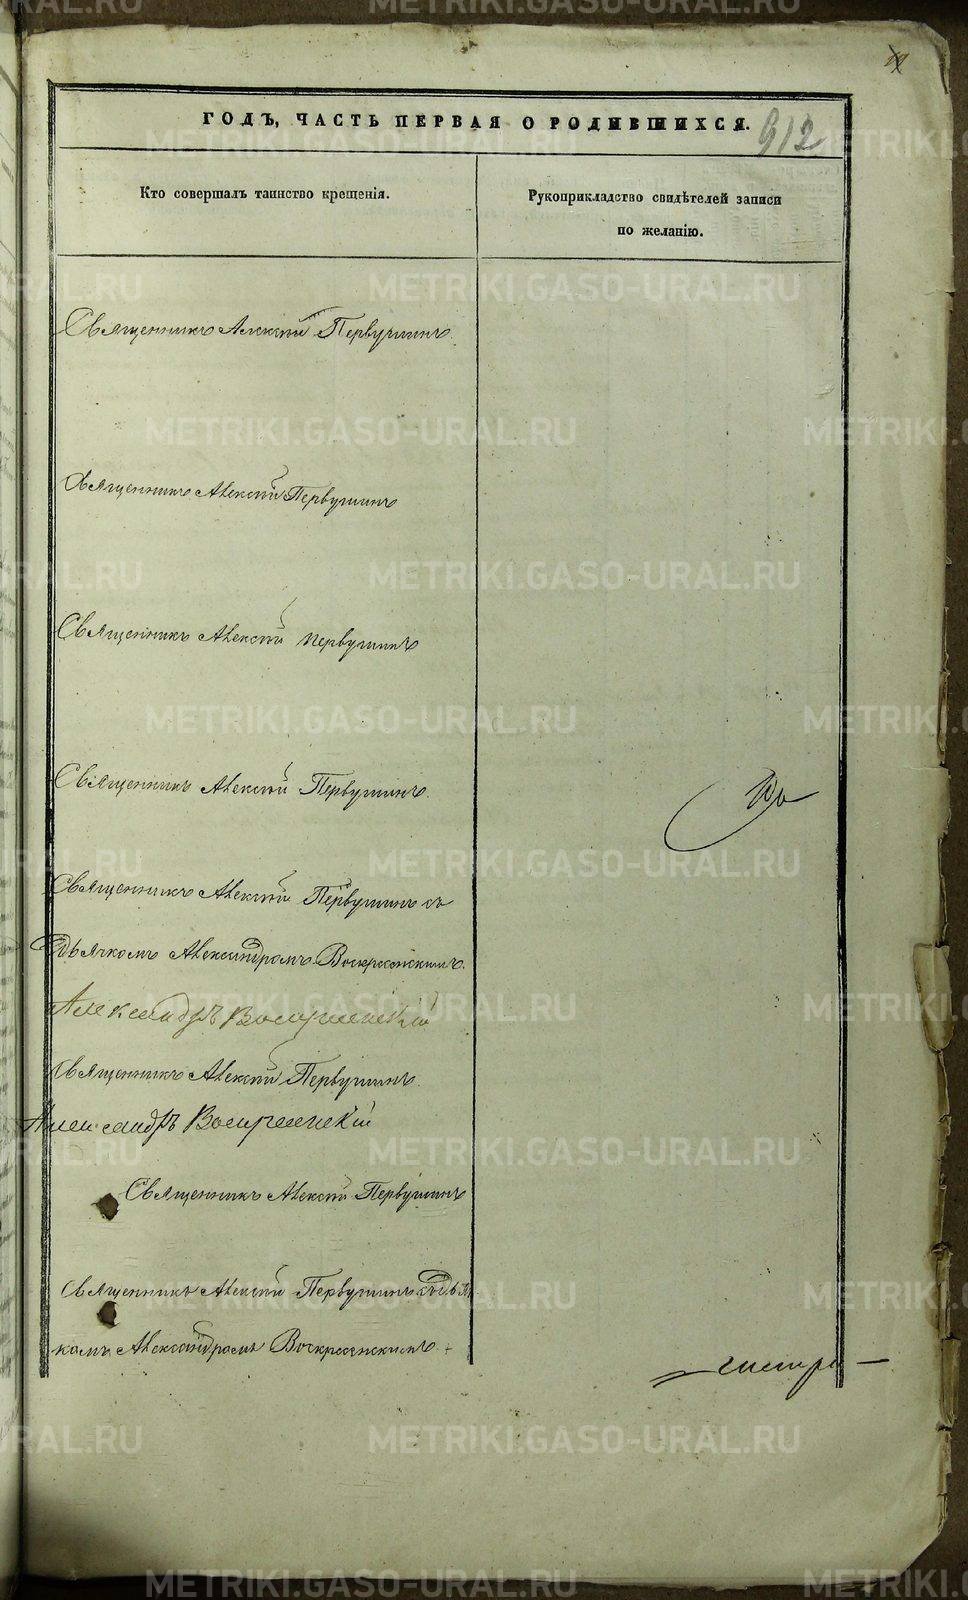 ГОДЪ, ЧАСТЬ ПЕРВАЯ О РОДИВШИХСЯ.
912
Кто совершалъ таинство крещенія.
Рукоприкладство свидѣтелей записи
по желанію.
Священникъ Алексій Первушинъ.
Священникъ Алексій Первушинъ
Священникъ Алексій Первушинъ
Священникъ Алексій Первушинъ.
Священникъ Алексій Первушинъ съ
дьячкомъ Александромъ Воскресенскимъ.
Александръ Воскресенскій
Священникъ Алексій Первушинъ.
Александръ Воскресенскій
Священникъ Алексій Первушинъ
Священникъ Алексій Первушинъ съ дьяч-
комъ Александромъ Воскресенскимъ.
METRIKI.GASO-URAL.RU